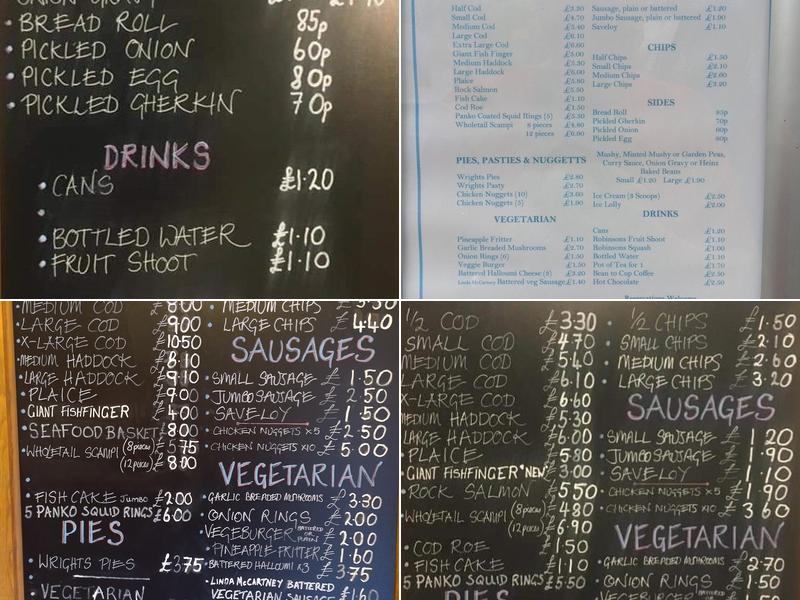 BREAD ROLL 85p
PICKLED ONION 60p
PICKLED EGG 80p
PICKLED GHERKIN 70p
DRINKS
CANS £1·20
BOTTLED WATER £1·10
FRUIT SHOOT £1·10
Half Cod £3.30
Small Cod £4.70
Medium Cod £5.40
Large Cod £6.10
Extra Large Cod £6.60
Giant Fish Finger £3.00
Medium Haddock £5.30
Large Haddock £6.00
Plaice £5.80
Rock Salmon £5.50
Fish Cake £1.10
Cod Roe £1.50
Panko Coated Squid Rings (5) £5.50
Wholetail Scampi 8 pieces £4.80
12 pieces £6.90
PIES, PASTIES & NUGGETTS
Wrights Pies £2.80
Wrights Pasty £2.70
Chicken Nuggets (10) £3.60
Chicken Nuggets (5) £1.90
VEGETARIAN
Pineapple Fritter £1.10
Garlic Breaded Mushrooms £2.70
Onion Rings (6) £1.50
Veggie Burger £1.50
Battered Halloumi Cheese (3) £3.20
Linda McCartney Battered veg Sausage £1.40
Sausage, plain or battered £1.20
Jumbo Sausage, plain or battered £1.90
Saveloy £1.10
CHIPS
Half Chips £1.50
Small Chips £2.10
Medium Chips £2.60
Large Chips £3.20
SIDES
Bread Roll 85p
Pickled Gherkin 70p
Pickled Onion 60p
Pickled Egg 80p
Mushy, Minted Mushy or Garden Peas,
Curry Sauce, Onion Gravy or Heinz
Baked Beans
Small £1.20 Large £1.90
Ice Cream (3 Scoops) £2.50
Ice Lolly £2.00
DRINKS
Cans £1.20
Robinsons Fruit Shoot £1.10
Robinsons Squash £1.00
Bottled Water £1.10
Pot of Tea for 1 £1.70
Bean to Cup Coffee £2.50
Hot Chocolate £2.50
Reservations Welcome
MEDIUM COD £8·00
LARGE COD £9·00
X-LARGE COD £10·50
MEDIUM HADDOCK £8·10
LARGE HADDOCK £9·10
PLAICE £9·00
GIANT FISHFINGER £4·00
SEAFOOD BASKET £8·00
WHOLETAIL SCAMPI (8 pieces) £5·75
(12 pieces) £8·00
FISH CAKE JUMBO £2·00
5 PANKO SQUID RINGS £6·00
PIES
WRIGHTS PIES £3·75
VEGETARIAN
MEDIUM CHIPS £3·50
LARGE CHIPS £4·40
SAUSAGES
SMALL SAUSAGE £1·50
JUMBO SAUSAGE £2·50
SAVELOY £1·50
CHICKEN NUGGETS x5 £2·50
CHICKEN NUGGETS x10 £5·00
VEGETARIAN
GARLIC BREADED MUSHROOMS £3·30
ONION RINGS £2·00
VEGEBURGER BATTERED OR PLAIN £2·00
PINEAPPLE FRITTER £1·60
BATTERED HALLOUMI x3 £3·75
LINDA McCARTNEY BATTERED
VEGETARIAN SAUSAGE £1·60
1/2 COD £3·30
SMALL COD £4·70
MEDIUM COD £5·40
LARGE COD £6·10
X-LARGE COD £6·60
MEDIUM HADDOCK £5·30
LARGE HADDOCK £6·00
PLAICE £5·80
GIANT FISHFINGER *NEW* £3·00
ROCK SALMON £5·50
WHOLETAIL SCAMPI (8 pieces) £4·80
(12 pieces) £6·90
COD ROE £1·50
FISH CAKE £1·10
5 PANKO SQUID RINGS £5·50
PIES
1/2 CHIPS £1·50
SMALL CHIPS £2·10
MEDIUM CHIPS £2·60
LARGE CHIPS £3·20
SAUSAGES
SMALL SAUSAGE £1·20
JUMBO SAUSAGE £1·90
SAVELOY £1·10
CHICKEN NUGGETS x5 £1·90
CHICKEN NUGGETS x10 £3·60
VEGETARIAN
GARLIC BREADED MUSHROOMS £2·70
ONION RINGS £1·50
VEGEBURGER